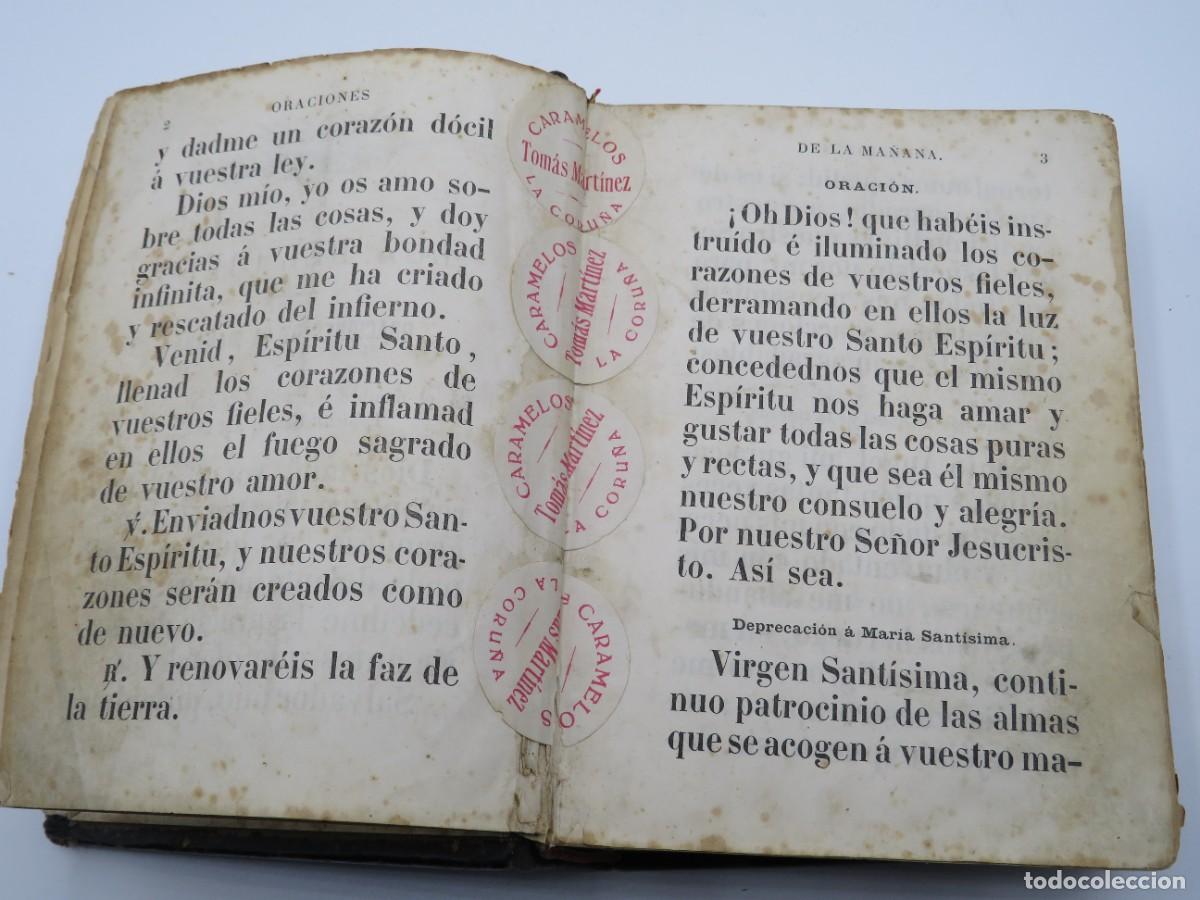 2
ORACIONES
y dadme un corazón dócil
á vuestra ley.
Dios mío, yo os amo so-
bre todas las cosas, y doy
gracias á vuestra bondad
infinita, que me ha criado
y rescatado del infierno.
Venid, Espíritu Santo,
llenad los corazones de
vuestros fieles, é inflamad
en ellos el fuego sagrado
de vuestro amor.
℣. Enviadnos vuestro San-
to Espíritu, y nuestros cora-
zones serán creados como
de nuevo.
℟. Y renovaréis la faz de
la tierra.
CARAMELOS
Tomás Martínez
LA CORUÑA
CARAMELOS
Tomás Martínez
LA CORUÑA
CARAMELOS
Tomás Martínez
LA CORUÑA
CARAMELOS
Tomás Martínez
LA CORUÑA
DE LA MAÑANA.
3
ORACIÓN.
¡Oh Dios! que habéis ins-
truído é iluminado los co-
razones de vuestros fieles,
derramando en ellos la luz
de vuestro Santo Espíritu;
concedednos que el mismo
Espíritu nos haga amar y
gustar todas las cosas puras
y rectas, y que sea él mismo
nuestro consuelo y alegría.
Por nuestro Señor Jesucris-
to. Así sea.
Deprecación á Maria Santísima.
Virgen Santísima, conti-
nuo patrocinio de las almas
que se acogen á vuestro ma-
todocoleccion